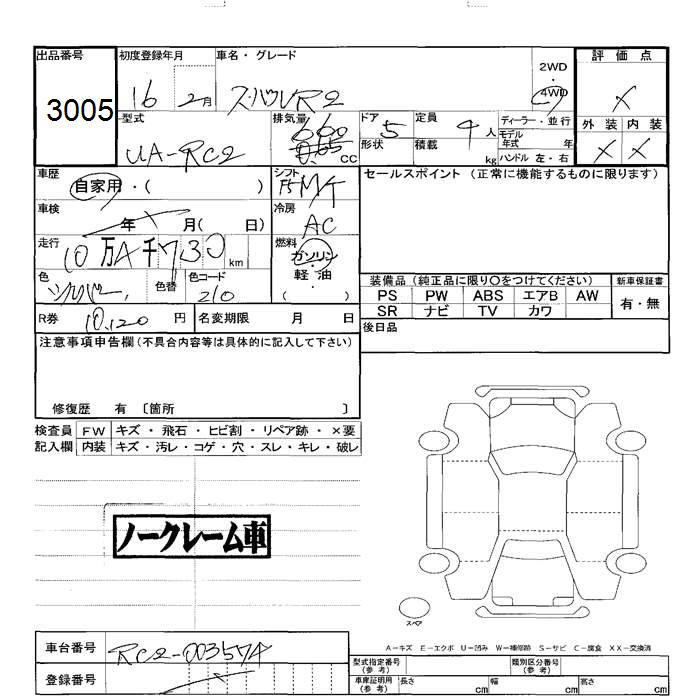 出品番号 初度登録年月 車名・グレード 2WD 評価点
3005 16 2月 スバルR2 ・ 4WD ×
型式 排気量 ドア 定員 ディーラー・並行 外装 内装
UA-RC2 660 0.65 cc 5 4人 モデル年式 年 × ×
形状 積載 kg ハンドル 左・右
車歴 自家用・( ) シフト F5 M/T セールスポイント (正常に機能するものに限ります)
車検 年 月( 日) 冷房 AC
走行 10万 千 730 km 燃料 ガソリン
色 シルバー 色替 色コード 210 軽・油 ( )
装備品 (純正品に限り○をつけてください) 新車保証書
PS PW ABS エアB AW 有・無
SR ナビ TV カワ
R券 10,120 円 名変期限 月 日 後日品
注意事項申告欄(不具合内容等は具体的に記入して下さい)
修復歴 有 〔箇所 〕
検査員 FW キズ・飛石・ヒビ割・リペア跡・×要
記入欄 内装 キズ・汚レ・コゲ・穴・スレ・キレ・破レ
ノークレーム車
スペア
A-キズ E-エクボ U-凹み W-補修跡 S-サビ C-腐食 XX-交換済
車台番号 RC2-003574
登録番号
型式指定番号(参考) 類別区分番号(参考)
車庫証明用(参考) 長さ cm 幅 cm 高さ cm